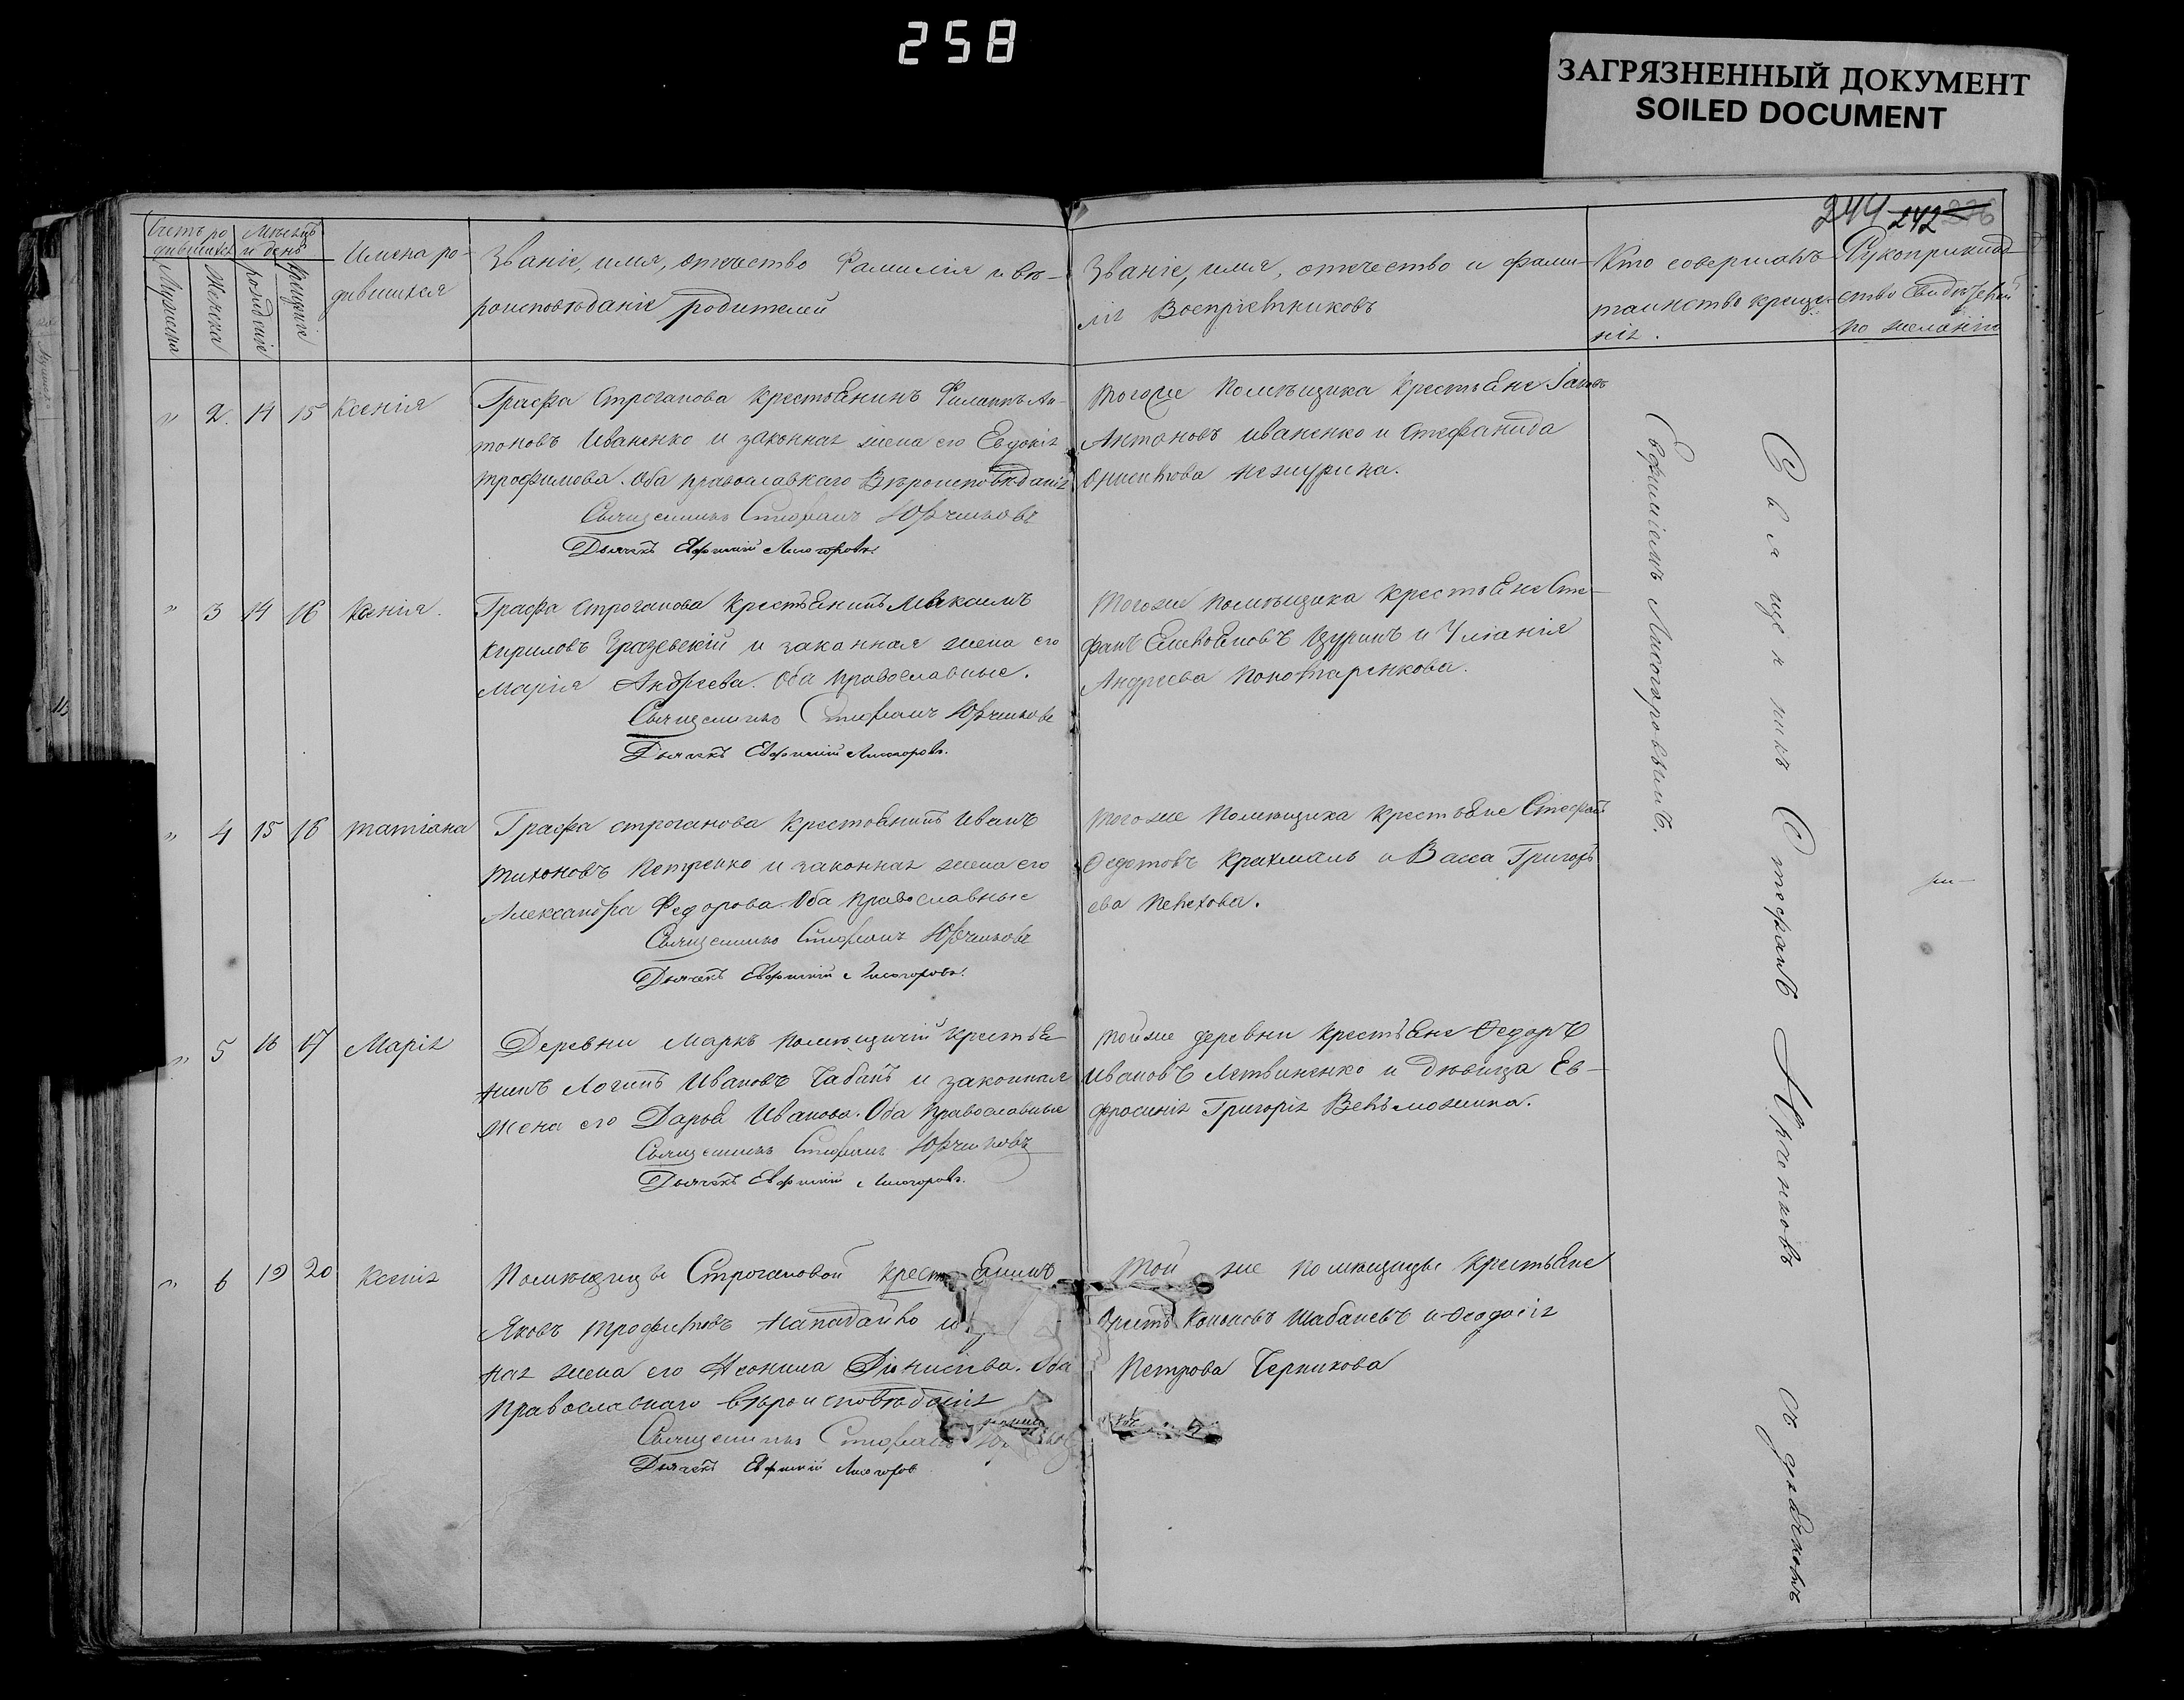 258
ЗАГРЯЗНЕННЫЙ ДОКУМЕНТ
SOILED DOCUMENT
244 242 236
Счетъ ро
дившихся
Мужеска
Женска
Мѣсяцъ
и день
рожденіе
крещеніе
Имена ро-
дившихся
Званіе, имя, отчество Фамилія и вѣ-
роисповѣданіе родителей
Званіе, имя, отчество и фами-
лія Воспріемниковъ
Кто совершалъ
таинство креще-
нія.
Рукоприклад
ство свидѣтелей
по желанію
" 2. 14 15 Ксенія
Графа Строганова крестьянинъ Филиппъ Ан-
тоновъ Иваненко и законная жена его Евдокія
трофимова. Оба православнаго Вѣроисповѣданія
Священникъ Стефанъ Юрченковъ
Дьячекъ Евфимій Лисогоровъ.
Тогоже Помѣщика крестьяне
Антоновъ иваненко и Стефанида
" 3 14 16 Ксенія.
Графа Строганова крестьянинъ Максимъ
Кириловъ и законная жена его
Марія Андреева. Оба православные.
Священникъ Стефанъ Юрченковъ
Дьячекъ Евфимій Лисогоровъ.
Тогоже помѣщика крестьяне Сте-
фанъ и Уліанія
Андреева Пономаренкова.
" 4 15 16 Татіана
Графа строганова крестьянинъ Иванъ
Тихоновъ Петренко и законная жена его
Александра Федорова. Оба православные
Священникъ Стефанъ Юрченковъ
Дьячекъ Евфимій Лисогоровъ.
Тогоже Помѣщика крестьяне Стефанъ
Федотовъ Крахмаль и Васса Григорь
ева Пелехова.
" 5 16 17 Марія
Деревни Маркъ помѣщичій крестья-
нинъ Логинъ Ивановъ Чабанъ и законная
жена его Дарья Иванова. Оба православные
Священникъ Стефанъ Юрченковъ
Дьячекъ Евфимій Лисогоровъ.
Тойже деревни крестьяне Федоръ
Ивановъ Летвиненко и дѣвица Ев-
фросинія Григорія Вельможина.
" 6 19 20 Ксенія
Помѣщицы Строгановой крестьянинъ
Яковъ Трофимовъ Нападайко и
ная жена его Неонила Діонисіева. Оба
православнаго вѣроисповѣданія
Священникъ Стефанъ
Дьячекъ Евфимій Лисогоров
Той же помѣщицы крестьяне
Кононовъ Шабановъ и Феодосія
Петрова Черникова
Священникъ Стефанъ Юрченковъ съ дьячкомъ
Евфиміемъ Лисогоровымъ.